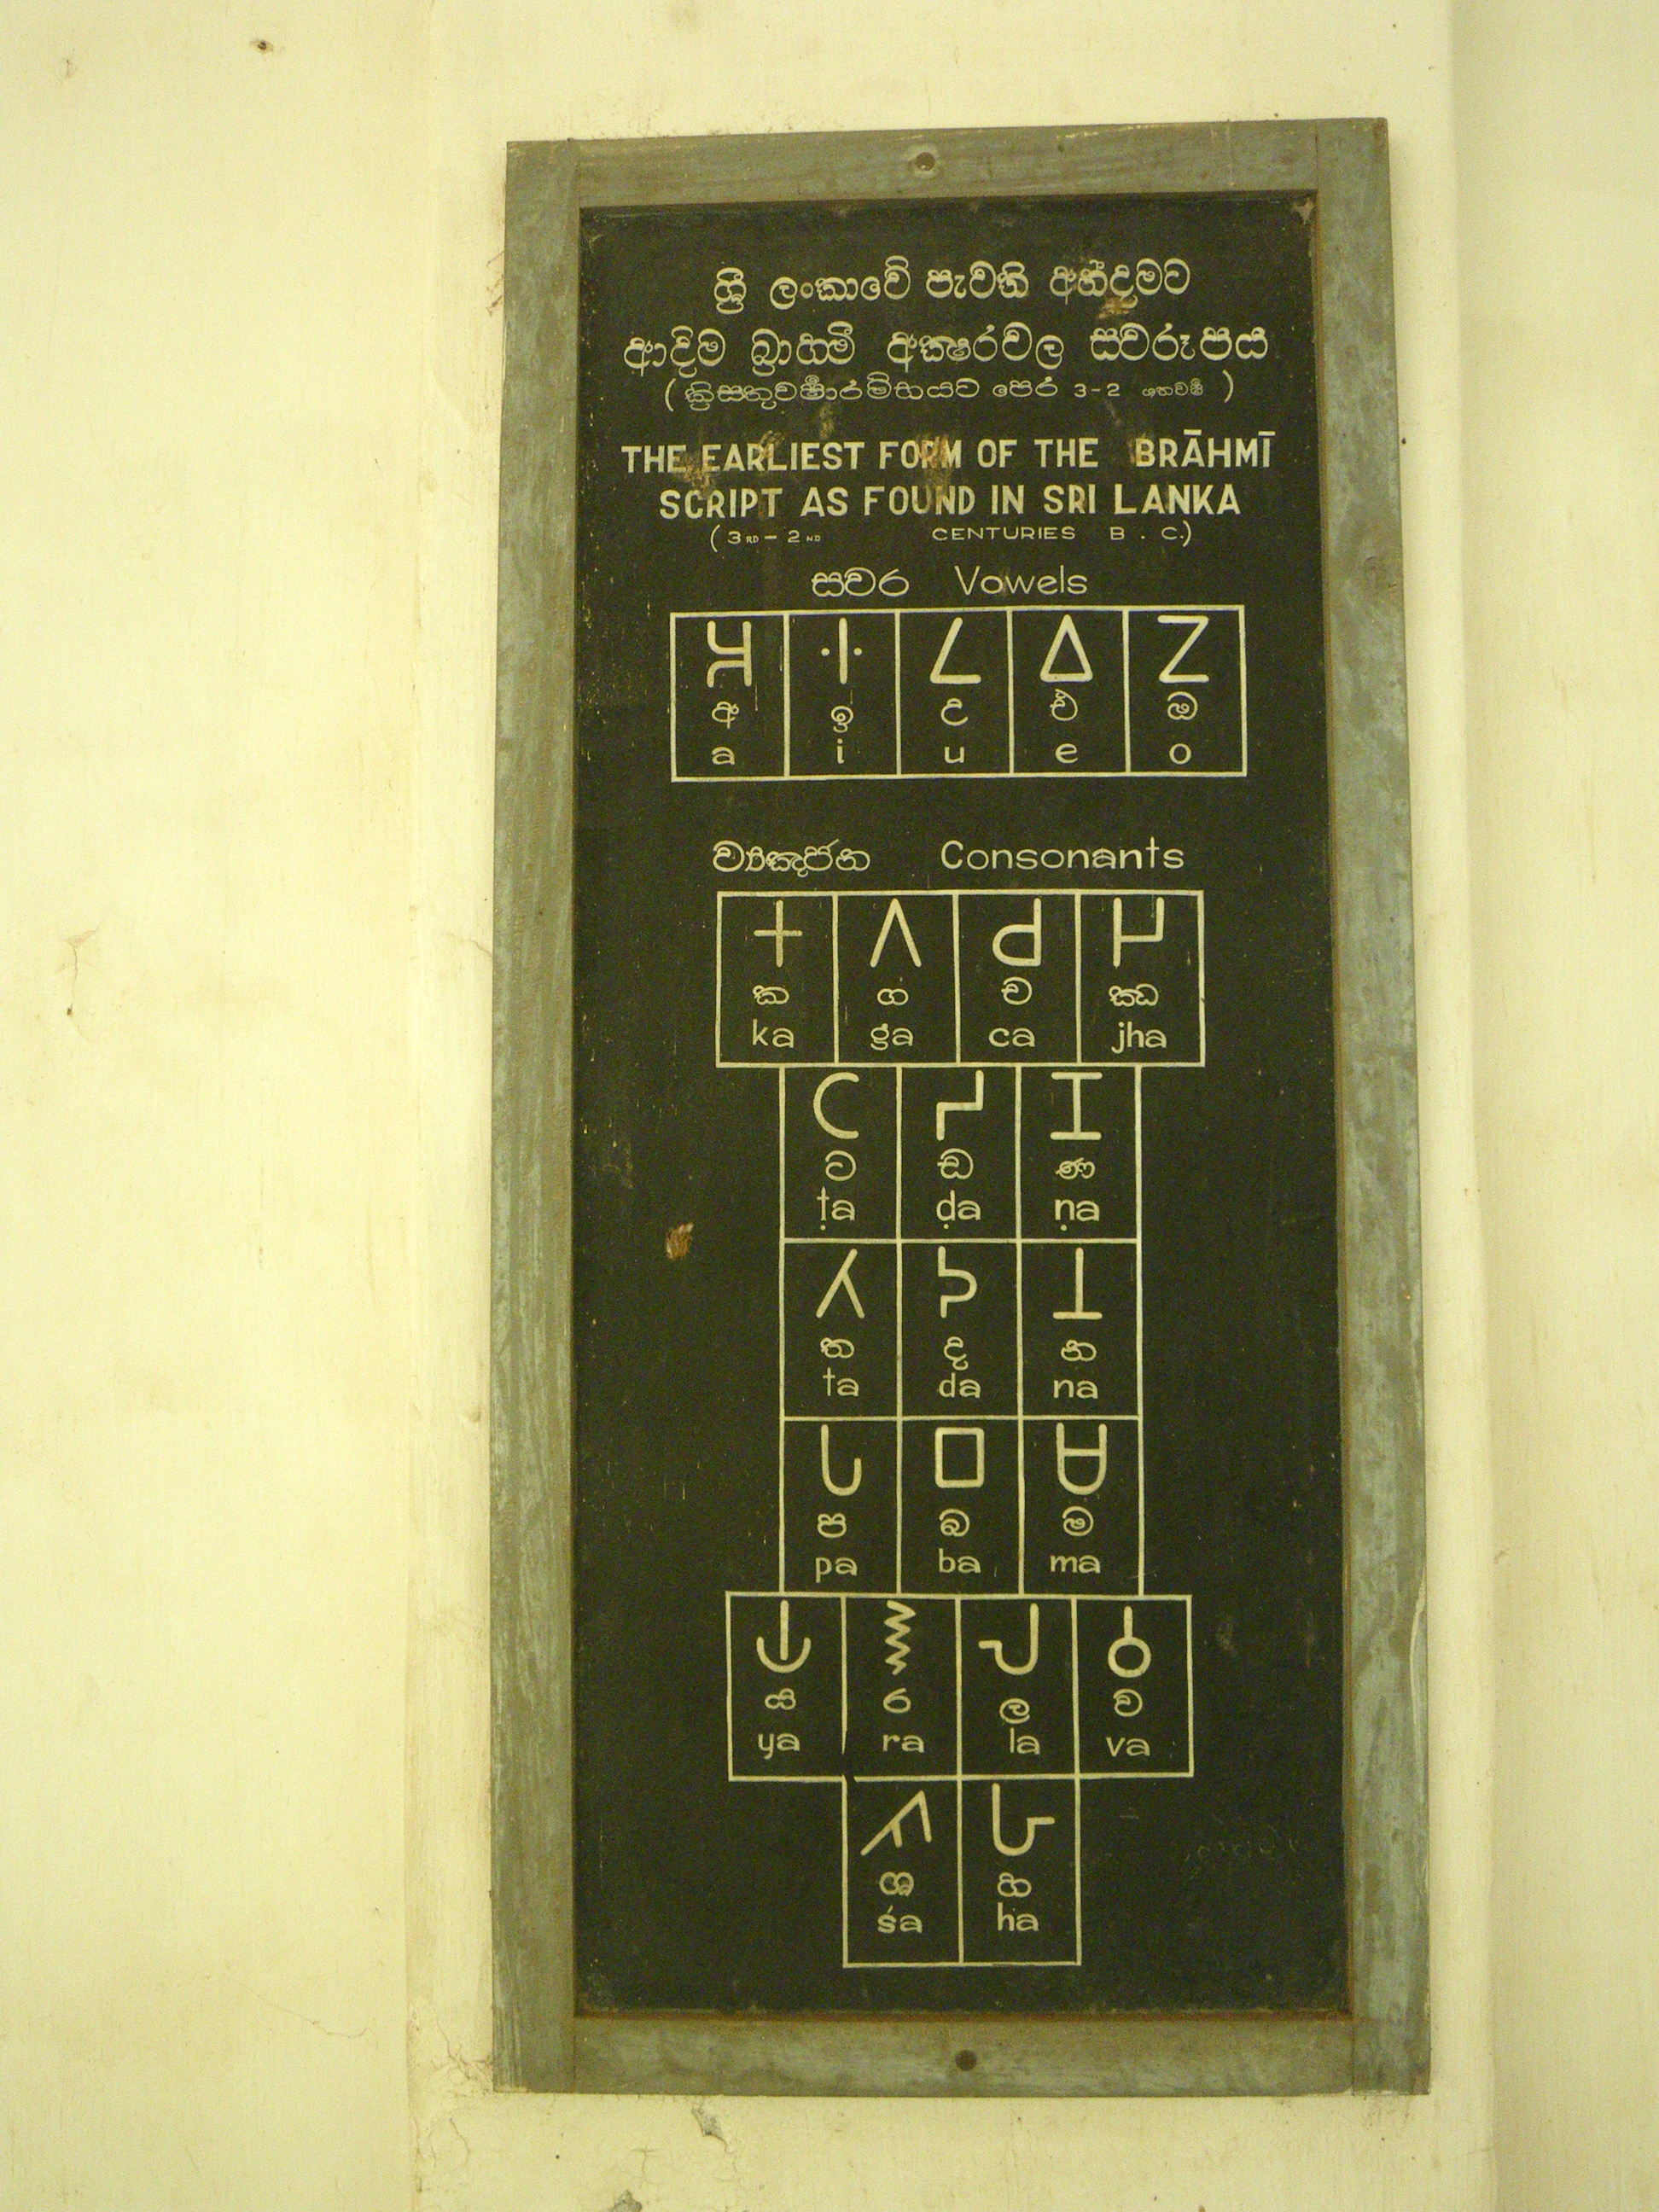 ශ්‍රී ලංකාවේ පැවති අන්දමට
ආදිම බ්‍රාහ්මී අක්ෂරවල ස්වරූපය
(ක්‍රිස්තුවර්ෂාරම්භයට පෙර 3-2 ශතවර්ෂ)
THE EARLIEST FORM OF THE BRĀHMĪ
SCRIPT AS FOUND IN SRI LANKA
(3RD - 2ND CENTURIES B. C.)
ස්වර Vowels
𑀅 𑀇 𑀉 𑀏 𑀑
අ ඉ උ එ ඔ
a i u e o
ව්‍යඤ්ජන Consonants
𑀓 𑀕 𑀘 𑀛
ක ග ච ඣ
ka ga ca jha
𑀝 𑀟 𑀡
ට ඩ ණ
ṭa ḍa ṇa
𑀢 𑀤 𑀦
ත ද න
ta da na
𑀧 𑀩 𑀫
ප බ ම
pa ba ma
𑀬 𑀭 𑀮 𑀯
ය ර ල ව
ya ra la va
𑀰 𑀳
ශ හ
śa ha